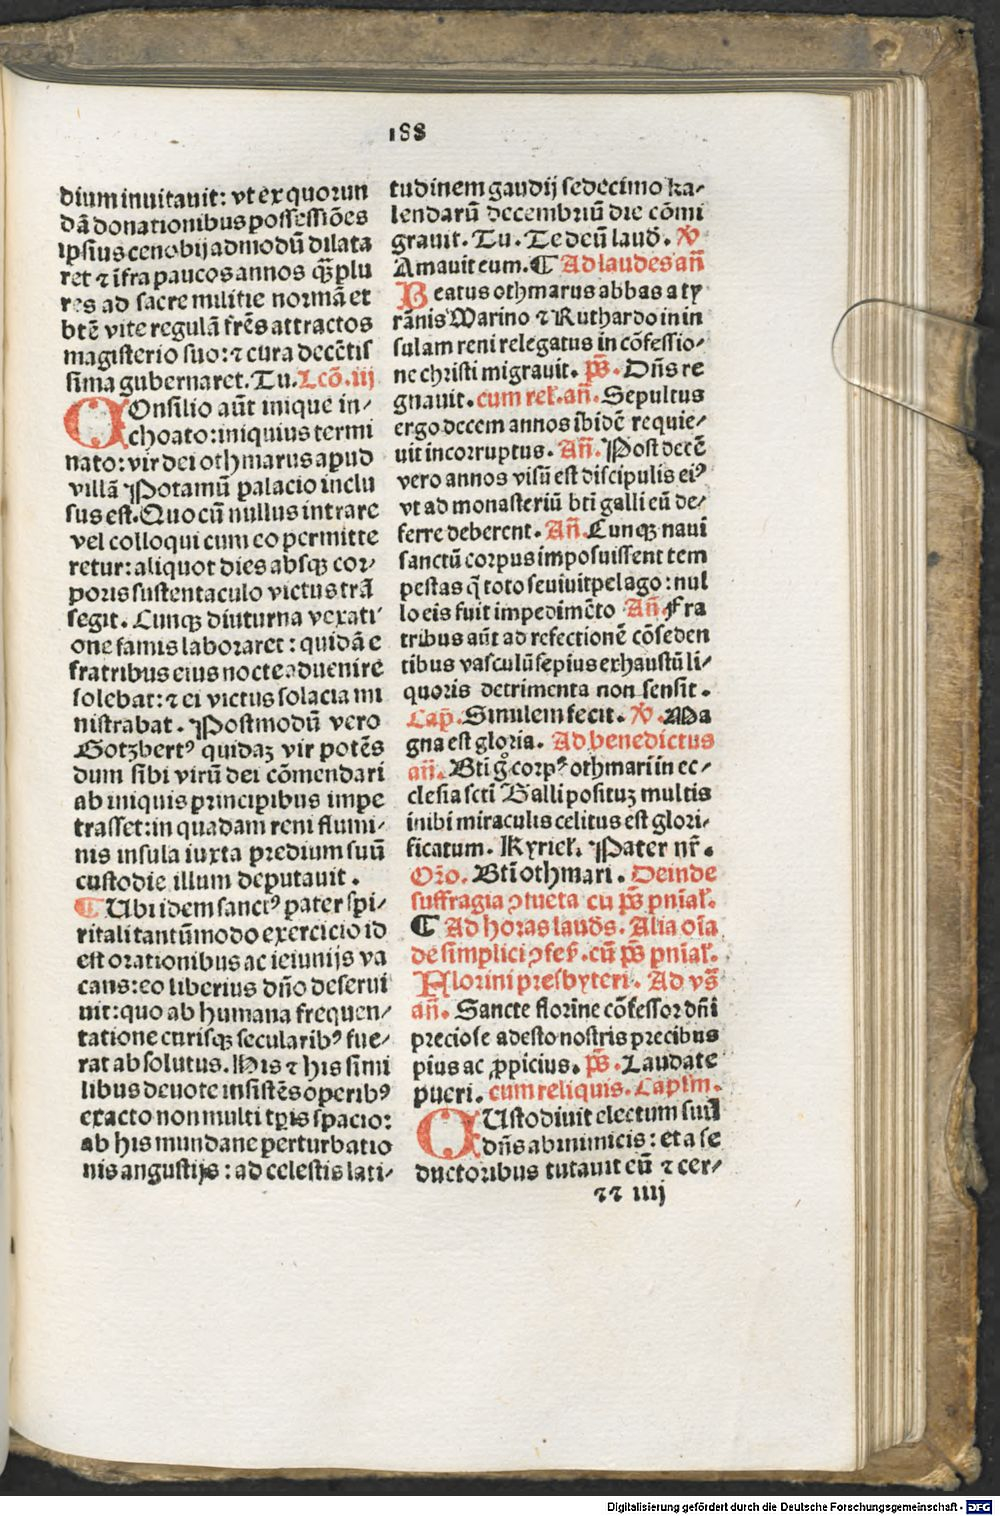 188
dium inuitauit: vt ex quorun
dā donationibus possessiōes
ipsius cenobij admodū dilata
ret ⁊ īfra paucos annos qꝫ plu
res ad sacre militie normā et
btē vite regulā frēs attractos
magisterio suo: ⁊ cura decētis
sima gubernaret. Tu. Lcō. iij
COnsilio aūt inique in-
choato: iniquius termi
nato: vir dei othmarus apud
villā Potamū palacio inclu
sus est. Quo cū nullus intrare
vel colloqui cum eo permitte
retur: aliquot dies absqꝫ cor-
poris sustentaculo victus trā
segit. Cunqꝫ diuturna vexati
one famis laboraret: quidā e
fratribus eius nocte aduenire
solebat: ⁊ ei victus solacia mi
nistrabat. Postmodū vero
Gotzbertꝰ quidaꝫ vir potēs
dum sibi virū dei cōmendari
ab iniquis principibus impe
trasset: in quadam reni flumi-
nis insula iuxta predium suū
custodie illum deputauit.
¶ Ubi idem sanctꝰ pater spi-
ritali tantūmodo exercicio id
est orationibus ac ieiunijs va
cans: eo liberius dño deserui
uit: quo ab humana frequen-
tatione curisqꝫ secularibꝰ fue-
rat absolutus. His ⁊ his simi
libus deuote insistēs operibꝰ
exacto non multi tꝑis spacio:
ab his mundane perturbatio
nis angustijs: ad celestis lati-
tudinem gaudij sedecimo ka-
lendarū decembriū die cōmi
grauit. Tu. Te deū laud. ꝟ
Amauit eum. ¶ Ad laudes añ
Beatus othmarus abbas a ty
rānis Warino ⁊ Ruthardo in in
sulam reni relegatus in cōfessio-
ne christi migrauit. ps̄. Dñs re
gnauit. cum rel. añ. Sepultus
ergo decem annos ibidē requie-
uit incorruptus. Añ. Post decē
vero annos visū est discipulis eiꝰ
vt ad monasteriū bti galli eū de-
ferre deberent. Añ. Cunqꝫ naui
sanctū corpus imposuissent tem
pestas q̄ toto seuiuit pelago: nul
lo eis fuit impedimēto Añ. Fra
tribus aūt ad refectionē cōseden
tibus vasculū sepius exhaustū li-
quoris detrimenta non sensit.
Cap̄. Similem fecit. ꝟ. Ma
gna est gloria. Ad benedictus
añ. Bti gͦ corpꝰ othmari in ec-
clesia scti Galli posituꝫ multis
inibi miraculis celitus est glori-
ficatum. Kyriel. Pater nr̄.
Orō. Bti othmari. Deinde
suffragia ꝯsueta cū ps̄ pnīal.
¶ Ad horas lauds. Alia oīa
de simplici ꝯfes. cū ps̄ pnīal.
Florini presbyteri. Ad vs̄
añ. Sancte florine cōfessor dñi
preciose adesto nostris precibus
pius ac ꝓpicius. ps̄. Laudate
pueri. cum reliquis. Caplm.
CUstodiuit electum suū
dñs ab inimicis: et a se
ductoribus tutauit eū ⁊ cer-
⁊⁊ iiij
Digitalisierung gefördert durch die Deutsche Forschungsgemeinschaft - DFG